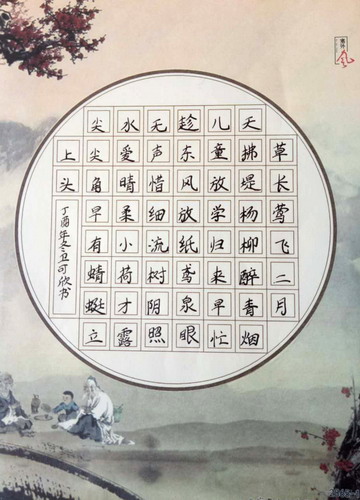 草长莺飞二月
天拂堤杨柳醉青烟
儿童放学归来早忙
趁东风放纸鸢泉眼
无声惜细流树阴照
水爱晴柔小荷才露
尖尖角早有蜻蜓立
上头
丁酉年冬丑可欣书